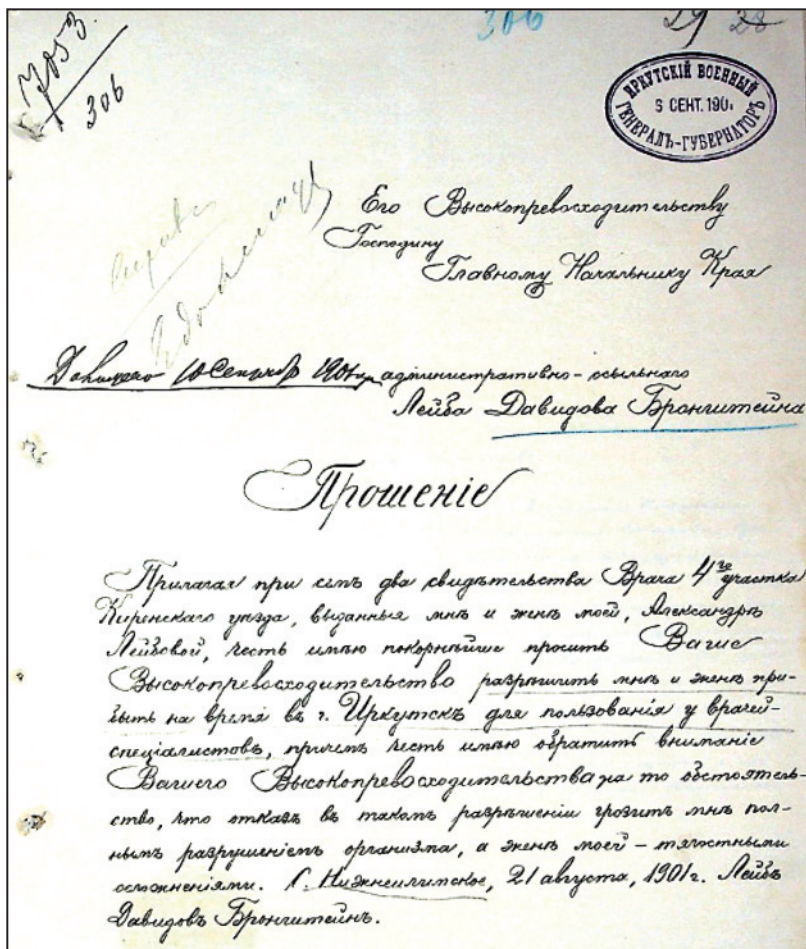 306
29 28
7053
306
ИРКУТСКІЙ ВОЕННЫЙ
6 СЕНТ. 190
ГЕНЕРАЛЪ-ГУБЕРНАТОРЪ
Его Высокопревосходительству
Господину
Главному Начальнику Края
Доложено 10 Сентября 1901 г. административно-ссыльнаго
Лейба Давидова Бронштейна
Прошеніе
Прилагая при семъ два свидѣтельства Врача 4го участка
Киренскаго уѣзда, выданныя мнѣ и женѣ моей, Александрѣ
Лейбовой, честь имѣю покорнѣйше просить Ваше
Высокопревосходительство разрѣшить мнѣ и женѣ при-
быть на время въ г. Иркутскъ для пользованія у врачей-
спеціалистовъ, причемъ честь имѣю обратить вниманіе
Вашего Высокопревосходительства на то обстоятель-
ство, что отказъ въ такомъ разрѣшеніи грозитъ мнѣ пол-
нымъ разрушеніемъ организма, а женѣ моей – тягостными
осложненіями. С. Нижнеилимское, 21 августа, 1901 г. Лейба
Давидовъ Бронштейнъ.